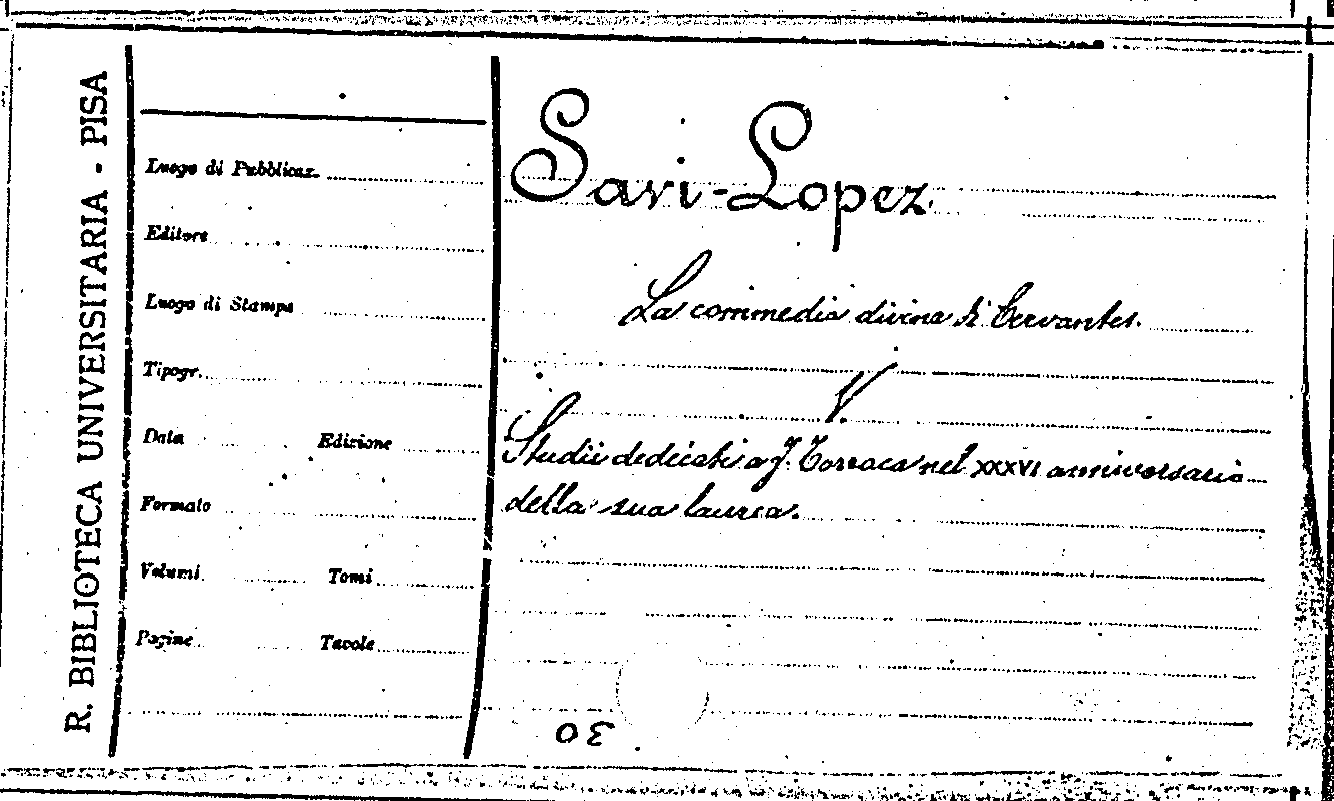 R. BIBLIOTECA UNIVERSITARIA - PISA
Luogo di Pubblicaz.
Editore
Luogo di Stampa
Tipogr.
Data Edizione
Formato
Volumi Tomi
Pagine Tavole
Savi-Lopez
La commedia divina di Cervantes.
V.
Studii dedicati a F. Torraca nel XXXVI anniversario
della sua laurea.